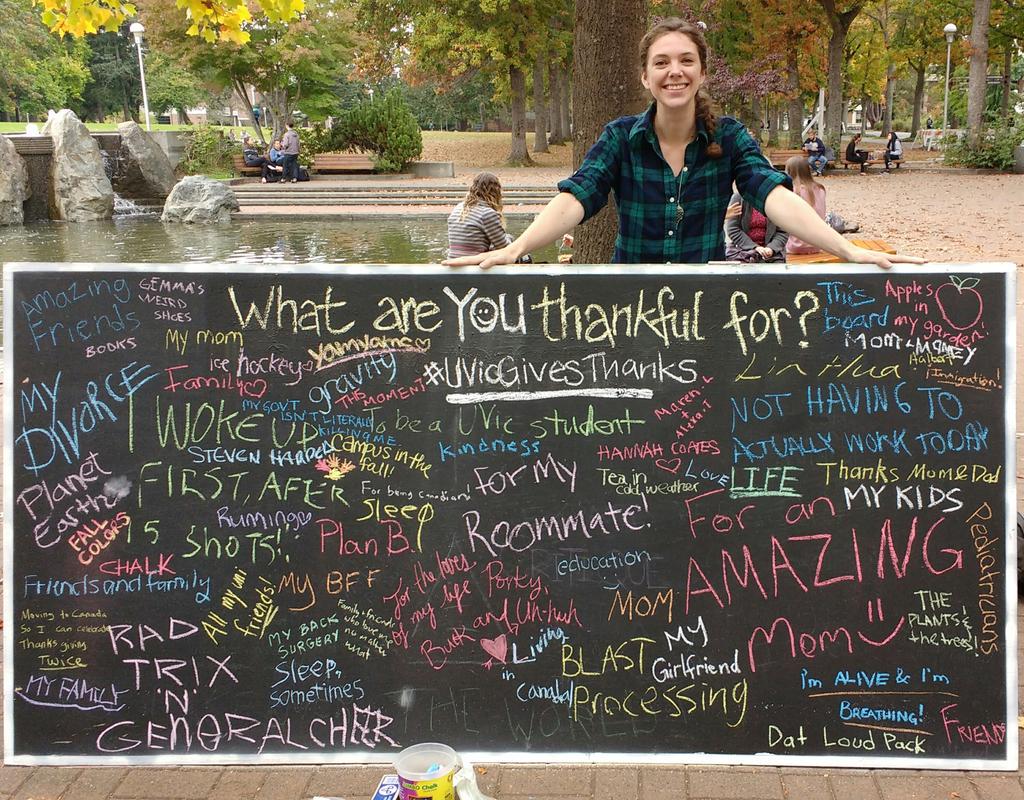 What are YOU thankful for?
#UVicGivesThanks
Amazing
Friends
GEMMA'S
WEIRD
SHOES
BOOKS
My mom
ice hockey
yamyams
Family
gravity
THIS MOMENT
MY
DIVORCE
I WOKE UP
FIRST, AFTER
15 SHOTS!!
MY GOV'T
ISN'T LITERALLY
KILLING ME
STEVEN HARPER
campus in the
fall!
To be a UVic student
kindness
Maren
This
board
Apples
in
my garden!
Mom & Money
Halbert
Immigration!
Lin Hua
NOT HAVING TO
ACTUALLY WORK TODAY
HANNAH COATES
Tea in
cold weather
Love
LIFE
Thanks Mom & Dad
MY KIDS
Planet
Earth
FALL
COLORS
For being Canadian!
Sleep
For my
Roommate!
Ruming
Plan B.
CHALK
Friends and family
All my uni
friends!
My BFF
for the loves
of my life Porky,
Buck and Uh-huh
education
MOM
For an
AMAZING
Mom
Pediatricians
THE
PLANTS &
the trees!
Moving to Canada
So I can celebrate
Thanksgiving
Twice
MY FAMILY
RAD
TRIX
'N'
GENORAL CHEER
MY BACK
SURGERY
Family & friends
who love me
no matter
what
Sleep,
sometimes
Living
in
Canada!
BLAST
Processing
MY
Girlfriend
THE WORLD
I'm ALIVE & I'm
BREATHING!
Dat Loud Pack
FRIENDS
Chalk